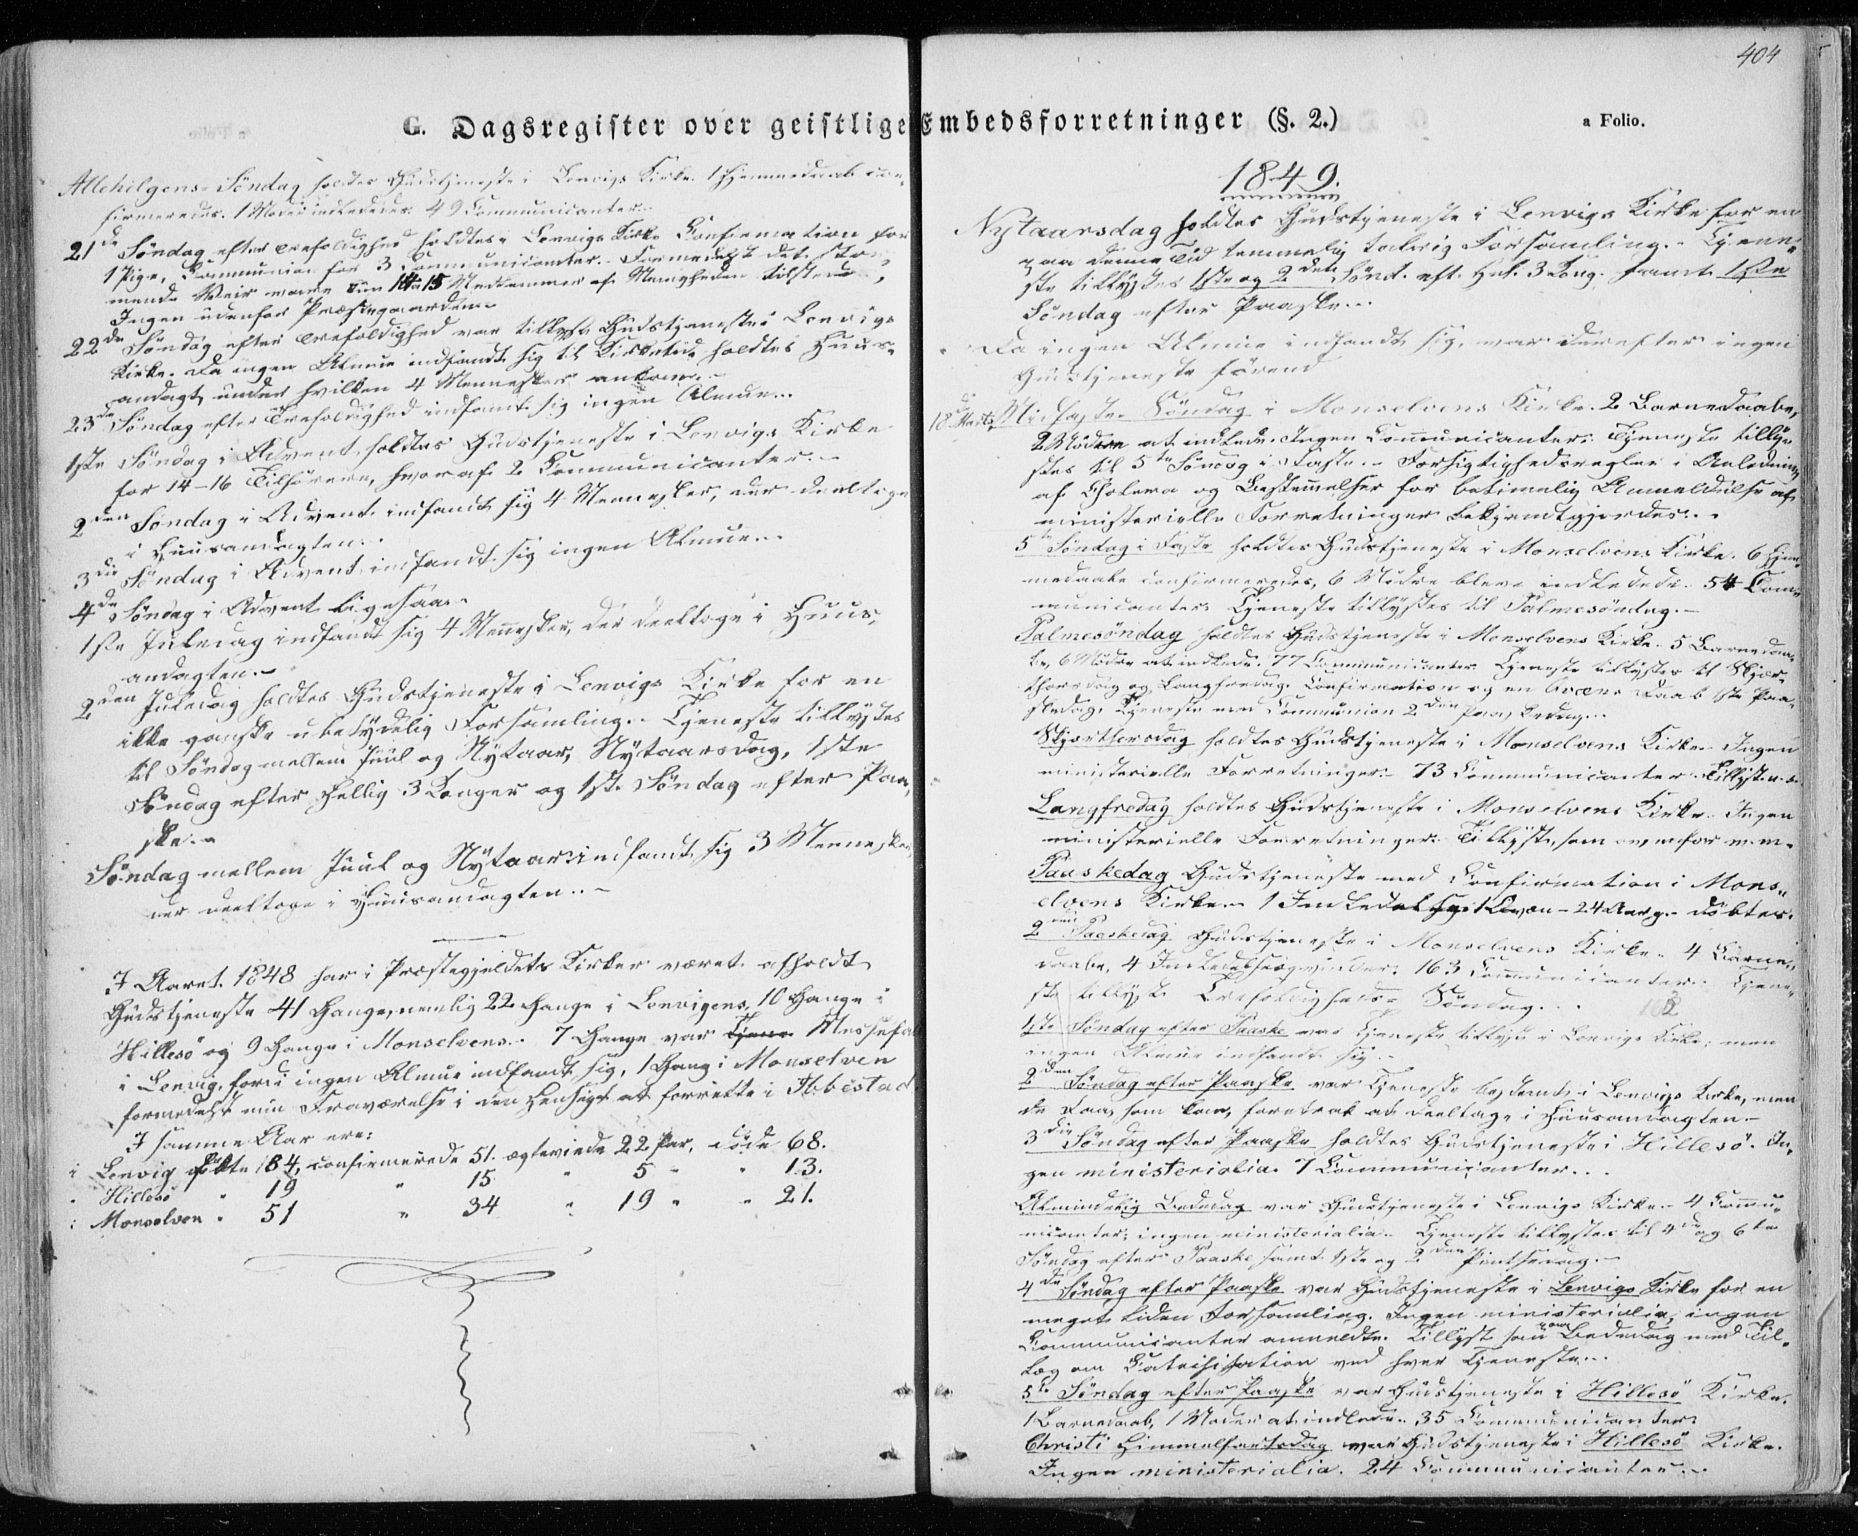 404
G. Dagsregister over geistlige Embedsforretninger (§. 2.)
a Folio.
Allehelgens-Søndag holdtes Gudstjeneste i Lenvigs Kirke. 1 Hjemmedaab con-
firmeredes. 1 Moder indlededes. 49 Communicanter.
21de Søndag efter Trefoldighed holdtes i Lenvigs Kirke Confirmation for
1 Pige, Communion for 3 Communicanter. Formedelst det stor-
mende Veir vare kun 14-15 Medlemmer af Menigheden tilstede,
Ingen udenfor Præstegaarden.
22de Søndag efter Trefoldighed var tillyst Gudstjeneste i Lenvigs
Kirke. Da ingen Almue indfandt sig til Kirketid, holdtes Huus-
andagt, under hvilken 4 Mennesker ankom.
23de Søndag efter Trefoldighed indfandt sig ingen Almue.
1ste Søndag i Advent holdtes Gudstjeneste i Lenvigs Kirke
for 14-16 Tilhørere, hvoraf 2 Communicanter.
2den Søndag i Advent indfandt sig 4 Mennesker, der deeltoge
i Huusandagten.
3die Søndag i Advent indfandt sig ingen Almue.
4de Søndag i Advent ligesaa.
1ste Juledag indfandt sig 4 Mennesker, der deeltoge i Huus-
andagten.
2den Juledag holdtes Gudstjeneste i Lenvigs Kirke for en
ikke ganske ubetydelig Forsamling. Tjeneste tillystes
til Søndag mellem Juul og Nytaar, Nytaarsdag, 1ste
Søndag efter Hellig 3 Konger og 1ste Søndag efter Paa-
ske.
Søndag mellem Juul og Nytaar indfandt sig 3 Mennesker,
der deeltoge i Huusandagten.
I Aaret 1848 har i Præstegjeldets Kirker været afholdt
Gudstjeneste 41 Gange, nemlig 22 Gange i Lenvigens, 10 Gange i
Hillesø og 9 Gange i Monselvens. 7 Gange var Messefald
i Lenvig, fordi ingen Almue indfandt sig, 1 Gang i Monselven
formedelst min Fraværelse i den Hensigt at forrette i Ibbestad
I samme Aar ere:
i Lenvig døbte 184, confirmerede 51. ægteviede 22 Par, døde 68.
" Hillesø " 19 " 15 " 5 " " 13.
" Monselven " 51 " 34 " 19 " " 21.
1849.
Nytaarsdag holdtes Gudstjeneste i Lenvigs Kirke for en
paa denne Tid temmelig talrig Forsamling. Tjene-
ste tillystes 1ste og 2den Sønd. eft. Hel. 3 Kong. samt 1ste
Søndag efter Paaske.
Da ingen Almue indfandt sig, var derefter ingen
Gudstjeneste førend
18de Marts, Midfaste-Søndag i Monselvens Kirke. 2 Barnedaabe,
2 Mødre at indlede. Ingen Communicanter. Tjeneste tilly-
stes til 5te Søndag i Faste. Forsigtighedsregler i Anledning
af Cholera og Bestemmelser for betimelig Anmeldelse af
ministerielle Forretninger bekjendtgjordes.
5te Søndag i Faste holdtes Gudstjeneste i Monselvens Kirke. 6 Hjem-
medaabe confirmeredes, 6 Mødre bleve indledede. 54 Com-
municanter. Tjeneste tillystes til Palmesøndag.
Palmesøndag holdtes Gudstjeneste i Monselvens Kirke. 5 Barnedaa-
be, 6 Mødre at indlede. 77 Communicanter. Tjeneste tillystes til Skjær-
thorsdag og Langfredag. Confirmation og en Qvæns Daab 1ste Paa-
skedag. Tjeneste med Communion 2den Paaskedag.
Skjærthorsdag holdtes Gudstjeneste i Monselvens Kirke. Ingen
ministerielle Forretninger. 73 Communicanter. Tillyst
Langfredag holdtes Gudstjeneste i Monselvens Kirke. Ingen
ministerielle Forretninger. Tillyst, som ovenfor
Paaskedag Gudstjeneste med Confirmation i Mons-
elvens Kirke. 1 Indledelse, 1 Qvæn - 24 Aar g. - døbtes.
2den Paaskedag Gudstjeneste i Monselvens Kirke. 4 Barne-
daabe, 4 Indledelseqvinder. 163 Communicanter. Tjene-
ste tillyst Trefoldigheds-Søndag.
1ste Søndag efter Paaske var Tjeneste tillyst i Lenvigs Kirke; men
ingen Almue indfandt sig.
2den Søndag efter Paaske var Tjeneste bestemt i Lenvigs Kirke, men
de Faa, som kom, foretrak at deeltage i Huusandagten.
3die Søndag efter Paaske holdtes Gudstjeneste i Hillesø. In-
gen ministerialia. 7 Communicanter.
Almindelig Bededag var Gudstjeneste i Lenvigs Kirke. 4 Commu-
nicanter; ingen ministerialia. Tjeneste tillystes til 4de og 6te
Søndag efter Paaske samt 1ste og 2den Pintsedag.
4de Søndag efter Paaske var Gudstjeneste i Lenvigs Kirke for en
meget liden Forsamling. Ingen ministerialia, ingen
Communicanter anmeldte. Tillyst som paa Bededag med Til-
læg om Catechisation ved hver Tjeneste.
5te Søndag efter Paaske var Gudstjeneste i Hillesø Kirke.
1 Barnedaab, 1 Moder at indlede. 35 Communicanter.
Christi Himmelfartsdag var Gudstjeneste i Hillesø Kirke.
Ingen ministerialia. 24 Communicanter.